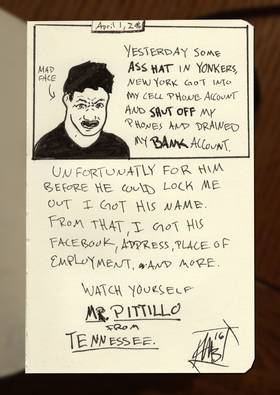 April 1, 2
MAD
FACE
YESTERDAY SOME
ASS HAT IN YONKERS,
NEW YORK GOT INTO
MY CELL PHONE ACCOUNT
AND SHUT OFF MY
PHONES AND DRAINED
MY BANK ACCOUNT.
UNFORTUNATLY FOR HIM
BEFORE HE COULD LOCK ME
OUT I GOT HIS NAME.
FROM THAT, I GOT HIS
FACEBOOK, ADDRESS, PLACE OF
EMPLOYMENT, AND MORE.
WATCH YOURSELF
MR. PITTILLO
FROM
TENNESSEE.
16